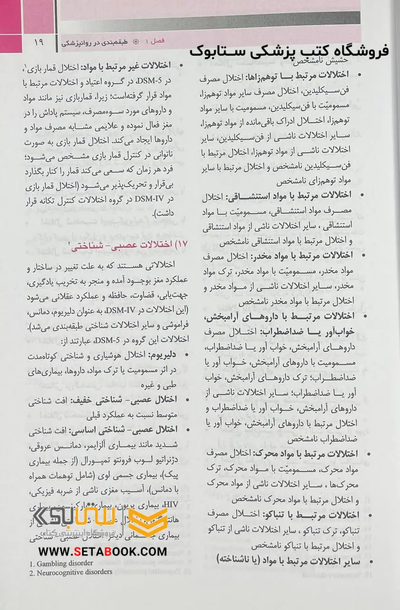 فصل ۱ طبقه‌بندی در روانپزشکی ۱۹
فروشگاه کتب پزشکی ستابوک
حشیش نامشخص
• اختلالات مرتبط با توهم‌زاها: اختلال مصرف
فن‌سیکلیدین، اختلال مصرف سایر مواد توهم‌زا،
مسمومیت با فن‌سیکلیدین، مسمومیت با سایر مواد
توهم‌زا، اختلال ادراک باقی‌مانده از مواد توهم‌زا،
سایر اختلالات ناشی از فن‌سیکلیدین، سایر
اختلالات ناشی از مواد توهم‌زا، اختلال مرتبط با
فن‌سیکلیدین نامشخص و اختلال مرتبط با
مواد توهم‌زای نامشخص
• اختلالات مرتبط با مواد استنشاقی: اختلال
مصرف مواد استنشاقی، مسمومیت با مواد
استنشاقی ، سایر اختلالات ناشی از مواد استنشاقی
و اختلال مرتبط با مواد استنشاقی نامشخص
• اختلالات مرتبط با مواد مخدر: اختلال مصرف
مواد مخدر، مسمومیت با مواد مخدر، ترک مواد
مخدر، سایر اختلالات ناشی از مواد مخدر و
اختلال مرتبط با مواد مخدر نامشخص
• اختلالات مرتبط با داروهای آرامبخش،
خواب‌آور یا ضداضطراب: اختلال مصرف
داروهای آرامبخش، خواب آور یا ضداضطراب،
مسمومیت با داروهای آرامبخش، خواب آور یا
ضداضطراب؛ ترک داروهای آرامبخش، خواب
آور یا ضداضطراب؛ سایر اختلالات ناشی از
داروهای آرامبخش، خواب آور یا ضداضطراب و
اختلال مرتبط با داروهای آرامبخش، خواب آور
یا ضداضطراب نامشخص
• اختلالات مرتبط با مواد محرک: اختلال مصرف
مواد محرک، مسمومیت با مواد محرک، ترک
مواد محرک، سایر اختلالات ناشی از مواد محرک
و اختلال مرتبط با مواد محرک نامشخص
• اختلالات مرتبط با تنباکو: اختلال مصرف
تنباکو، ترک تنباکو ، سایر اختلالات ناشی از تنباکو
و اختلال مرتبط با تنباکو نامشخص
• سایر اختلالات مرتبط با مواد (یا ناشناخته)
• اختلالات غیر مرتبط با مواد: اختلال قمار بازی۱،
در DSM-5، در گروه اعتیاد و اختلالات مرتبط با
مواد قرار گرفته‌است؛ زیرا، قماربازی نیز مانند مواد
و داروهای مورد سوءمصرف، سیستم پاداش را در
مغز فعال نموده و علایمی مشابه مصرف مواد و
داروها ایجاد می‌کند. اختلال قمار بازی به صورت
ناتوانی در کنترل قمار بازی مشخص می‌شود؛
فرد هر زمان که سعی می کند قمار را کنار بگذارد
بی‌قرار و تحریک‌پذیر می‌شود (اختلال قمار بازی
در DSM-IV در گروه اختلالات کنترل تکانه قرار
داشت).
۱۷) اختلالات عصبی- شناختی۲
اختلالاتی هستند که به علت تغییر در ساختار و
عملکرد مغز بوجود آمده و منجر به تخریب یادگیری،
جهت‌یابی، قضاوت، حافظه و عملکرد عقلانی می‌شود
(این اختلالات در DSM-IV، به عنوان دلیریوم، دمانس،
فراموشی و سایر اختلالات شناختی طبقه‌بندی می‌شد).
اختلالات این گروه در DSM-5، عبارتند از:
• دلیریوم: اختلال هوشیاری و شناختی کوتاه‌مدت
در اثر مسمومیت یا ترک مواد، داروها، بیماری‌های
طبی و غیره
• اختلال عصبی- شناختی خفیف: افت شناختی
متوسط نسبت به عملکرد قبلی
• اختلال عصبی- شناختی اساسی: افت شناختی
شدید مانند بیماری آلزایمر، دمانس عروقی،
دژنراتیو لوب فرونتو تمپورال (از جمله بیماری
پیک)، بیماری جسم لوی (شامل توهمات همراه
با دمانس)، آسیب مغزی ناشی از ضربه فیزیکی،
HIV، بیماری پریون، بیماری پارکینسون، بیماری
جسمانی دیگر، اختلال عصبی- شناختی
ستابوک
www.SETABOOK.com
1. Gambling disorder
2. Neurocognitive disorders